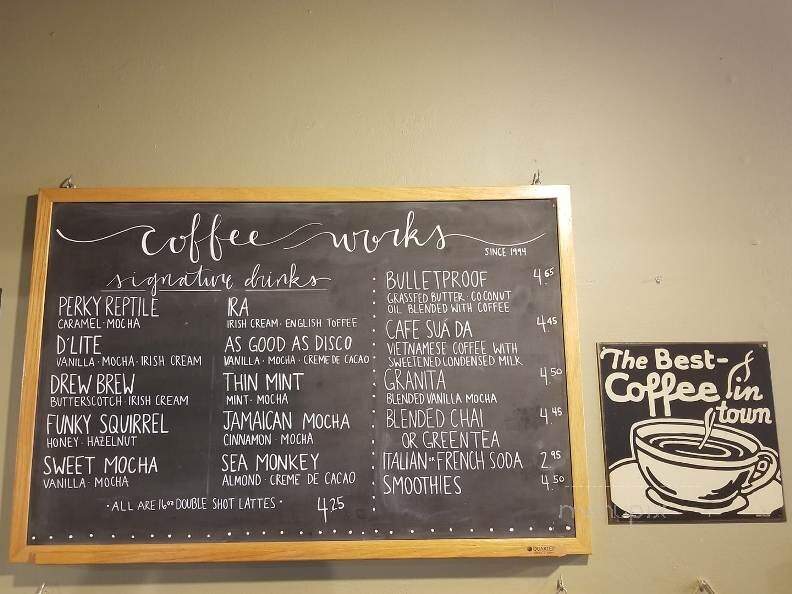 coffee works
SINCE 1994
signature drinks
PERKY REPTILE
CARAMEL · MOCHA
D'LITE
VANILLA · MOCHA · IRISH CREAM
DREW BREW
BUTTERSCOTCH · IRISH CREAM
FUNKY SQUIRREL
HONEY · HAZELNUT
SWEET MOCHA
VANILLA · MOCHA
IRA
IRISH CREAM · ENGLISH TOFFEE
AS GOOD AS DISCO
VANILLA · MOCHA · CREME DE CACAO
THIN MINT
MINT · MOCHA
JAMAICAN MOCHA
CINNAMON · MOCHA
SEA MONKEY
ALMOND · CREME DE CACAO
· ALL ARE 16oz DOUBLE SHOT LATTES · 4.25
BULLETPROOF 4.65
GRASSFED BUTTER · COCONUT
OIL BLENDED WITH COFFEE
CAFE SUA DA 4.45
VIETNAMESE COFFEE WITH
SWEETENED CONDENSED MILK
GRANITA 4.50
BLENDED VANILLA MOCHA
BLENDED CHAI 4.45
OR GREEN TEA
ITALIAN or FRENCH SODA 2.95
SMOOTHIES 4.50
QUARTET
The Best
Coffee in
town